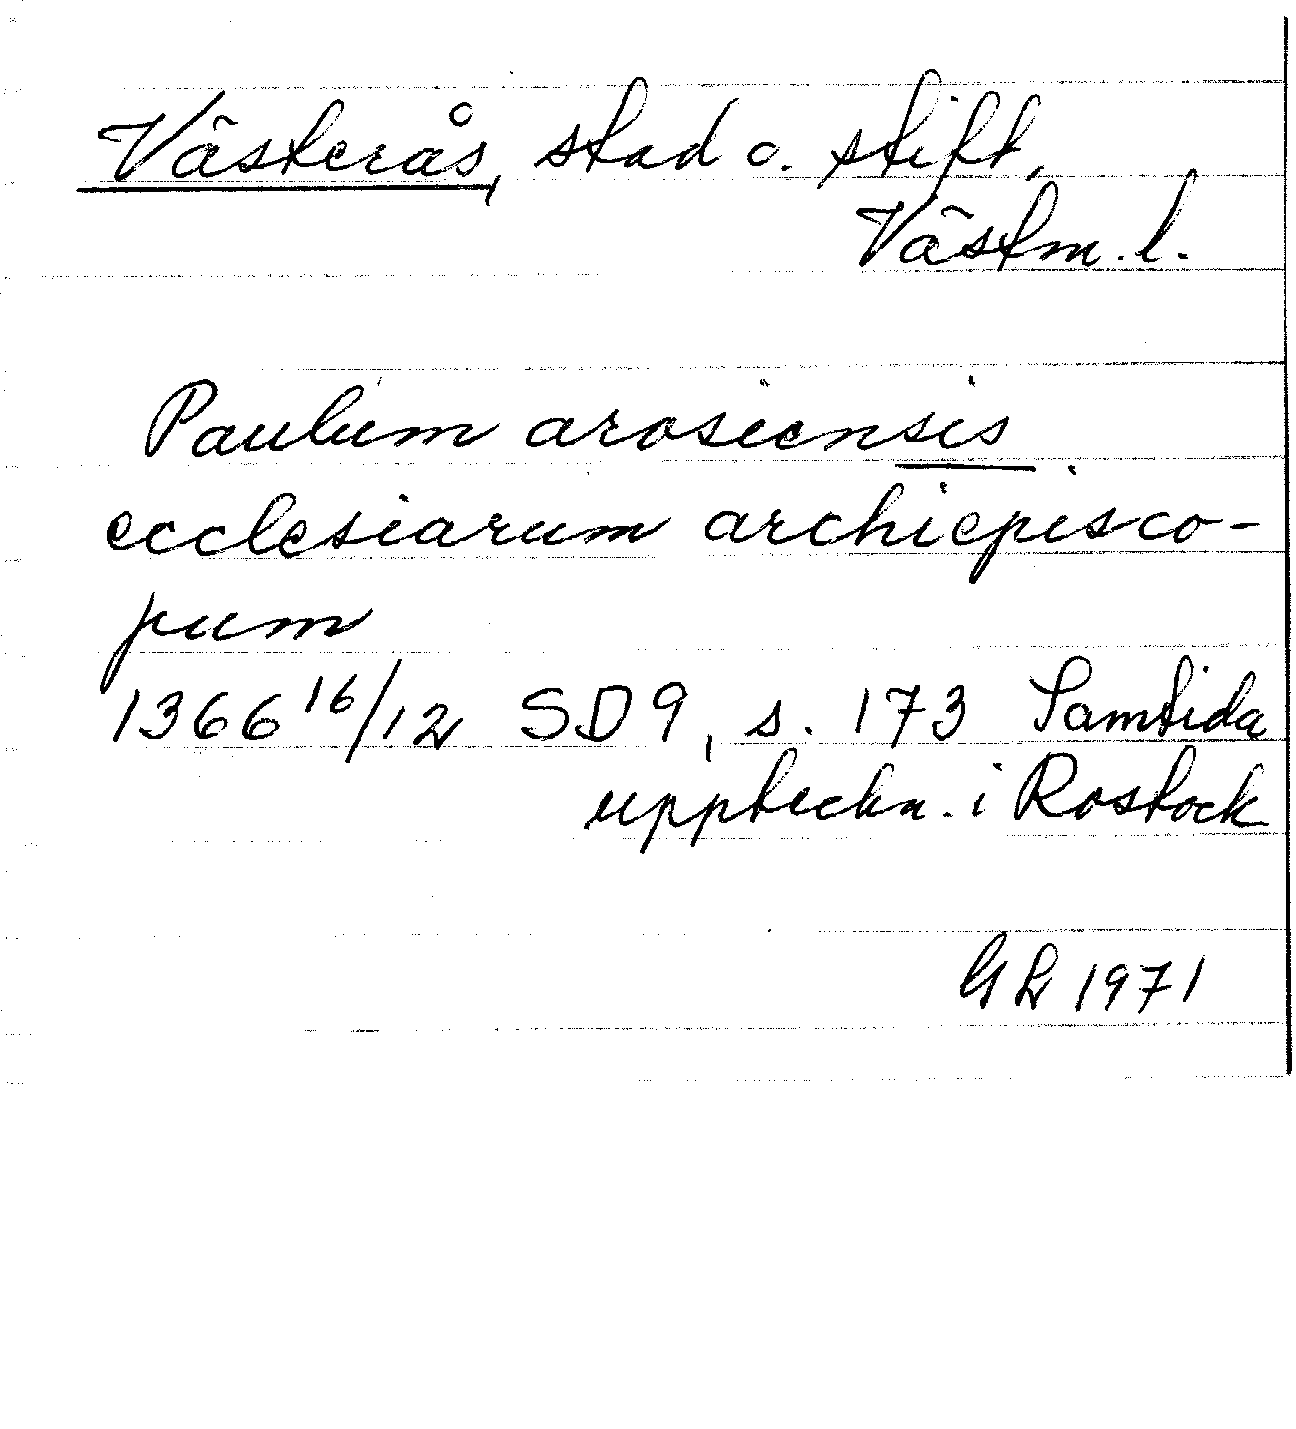 Västerås, stad o. stift,
Västm. l.
Paulum arosiensis
ecclesiarum archiepisco-
pum
1366 16/12 SD 9, s. 173 Samtida
uppteckn. i Rostock
GL 1971